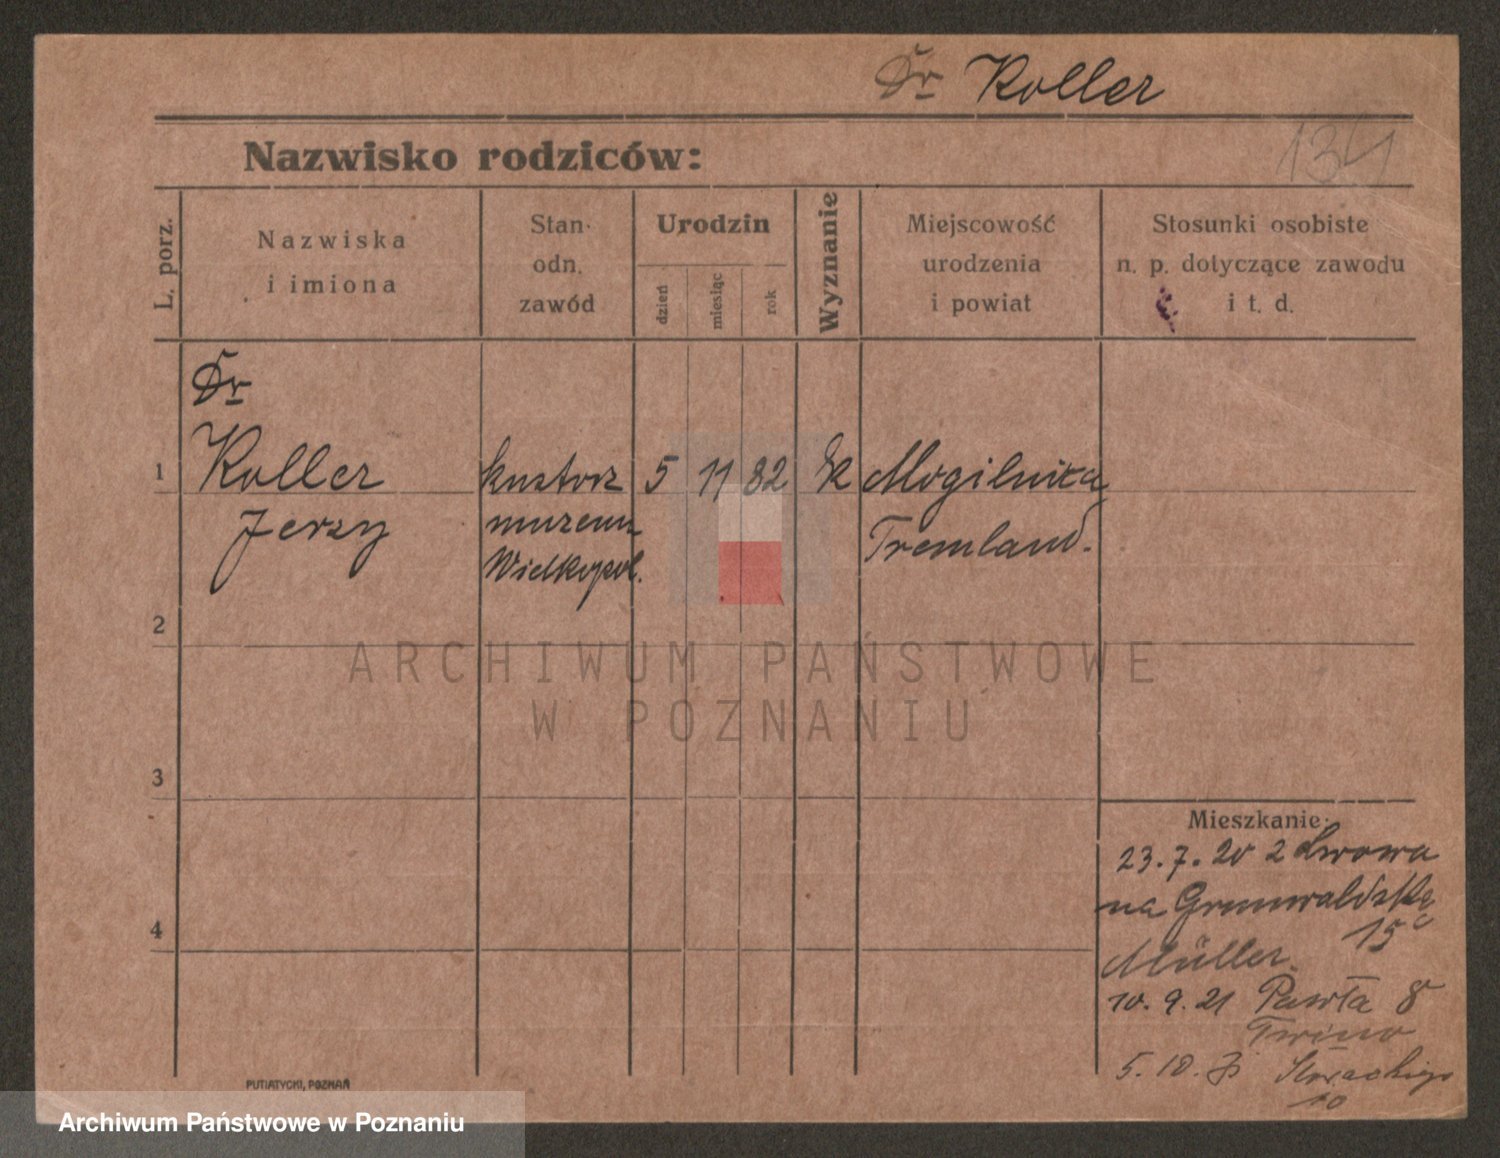 Dr Koller
134
Nazwisko rodziców:
L. porz.
Nazwiska
i imiona
Stan·
odn.
zawód
Urodzin
dzień
miesiąc
rok
Wyznanie
Miejscowość
urodzenia
i powiat
Stosunki osobiste
n. p. dotyczące zawodu
i t. d.
Dr
1 Koller kustosz 5 11 82 rk Mogilnica
Jerzy muzeum Tremland.
Wielkopol.
2
3
4
Mieszkanie·
23.7.20 z Lwowa
na Grunwaldzką
15
Müller
10.9.21 Pawła 8
5.10. Słowackiego
10
PUTIATYCKI, POZNAŃ
ARCHIWUM PAŃSTWOWE
W POZNANIU
Archiwum Państwowe w Poznaniu